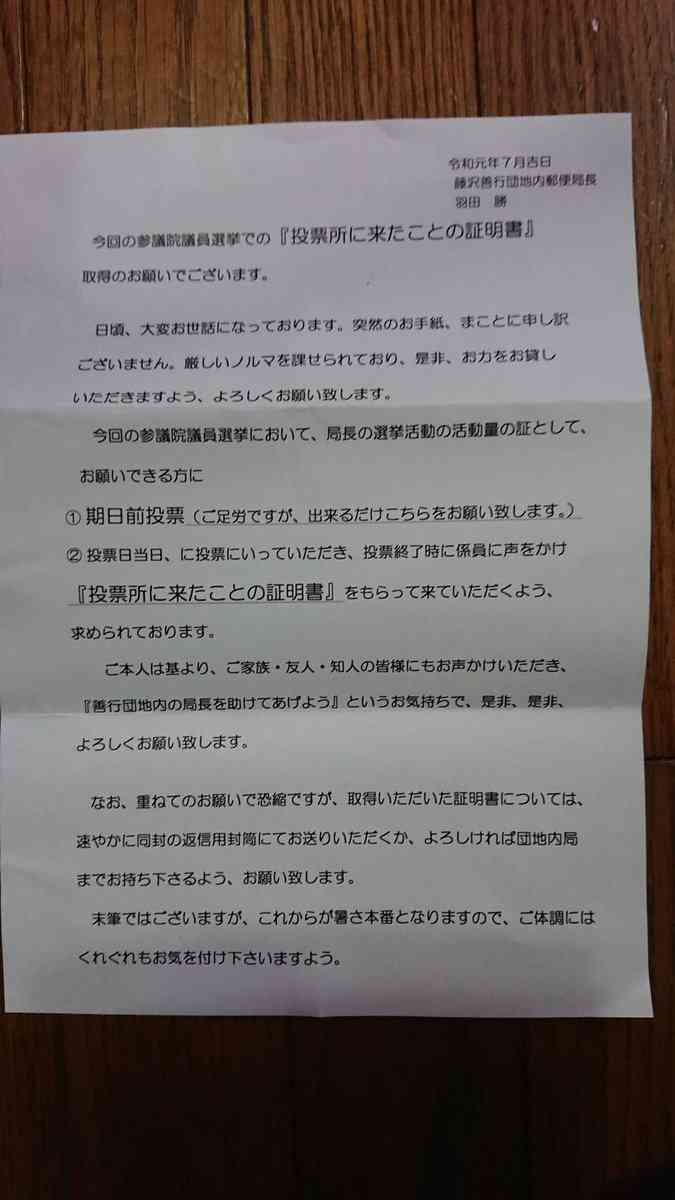 令和元年7月吉日
藤沢善行団地内郵便局長
羽田　勝
今回の参議院議員選挙での『投票所に来たことの証明書』
取得のお願いでございます。
日頃、大変お世話になっております。突然のお手紙、まことに申し訳
ございません。厳しいノルマを課せられており、是非、お力をお貸し
いただきますよう、よろしくお願い致します。
今回の参議院議員選挙において、局長の選挙活動の活動量の証として、
お願いできる方に
①期日前投票（ご足労ですが、出来るだけこちらをお願い致します。）
②投票日当日、に投票にいっていただき、投票終了時に係員に声をかけ
『投票所に来たことの証明書』をもらって来ていただくよう、
求められております。
ご本人は基より、ご家族・友人・知人の皆様にもお声かけいただき、
『善行団地内の局長を助けてあげよう』というお気持ちで、是非、是非、
よろしくお願い致します。
なお、重ねてのお願いで恐縮ですが、取得いただいた証明書については、
速やかに同封の返信用封筒にてお送りいただくか、よろしければ団地内局
までお持ち下さるよう、お願い致します。
末筆ではございますが、これからが暑さ本番となりますので、ご体調には
くれぐれもお気を付け下さいますよう。